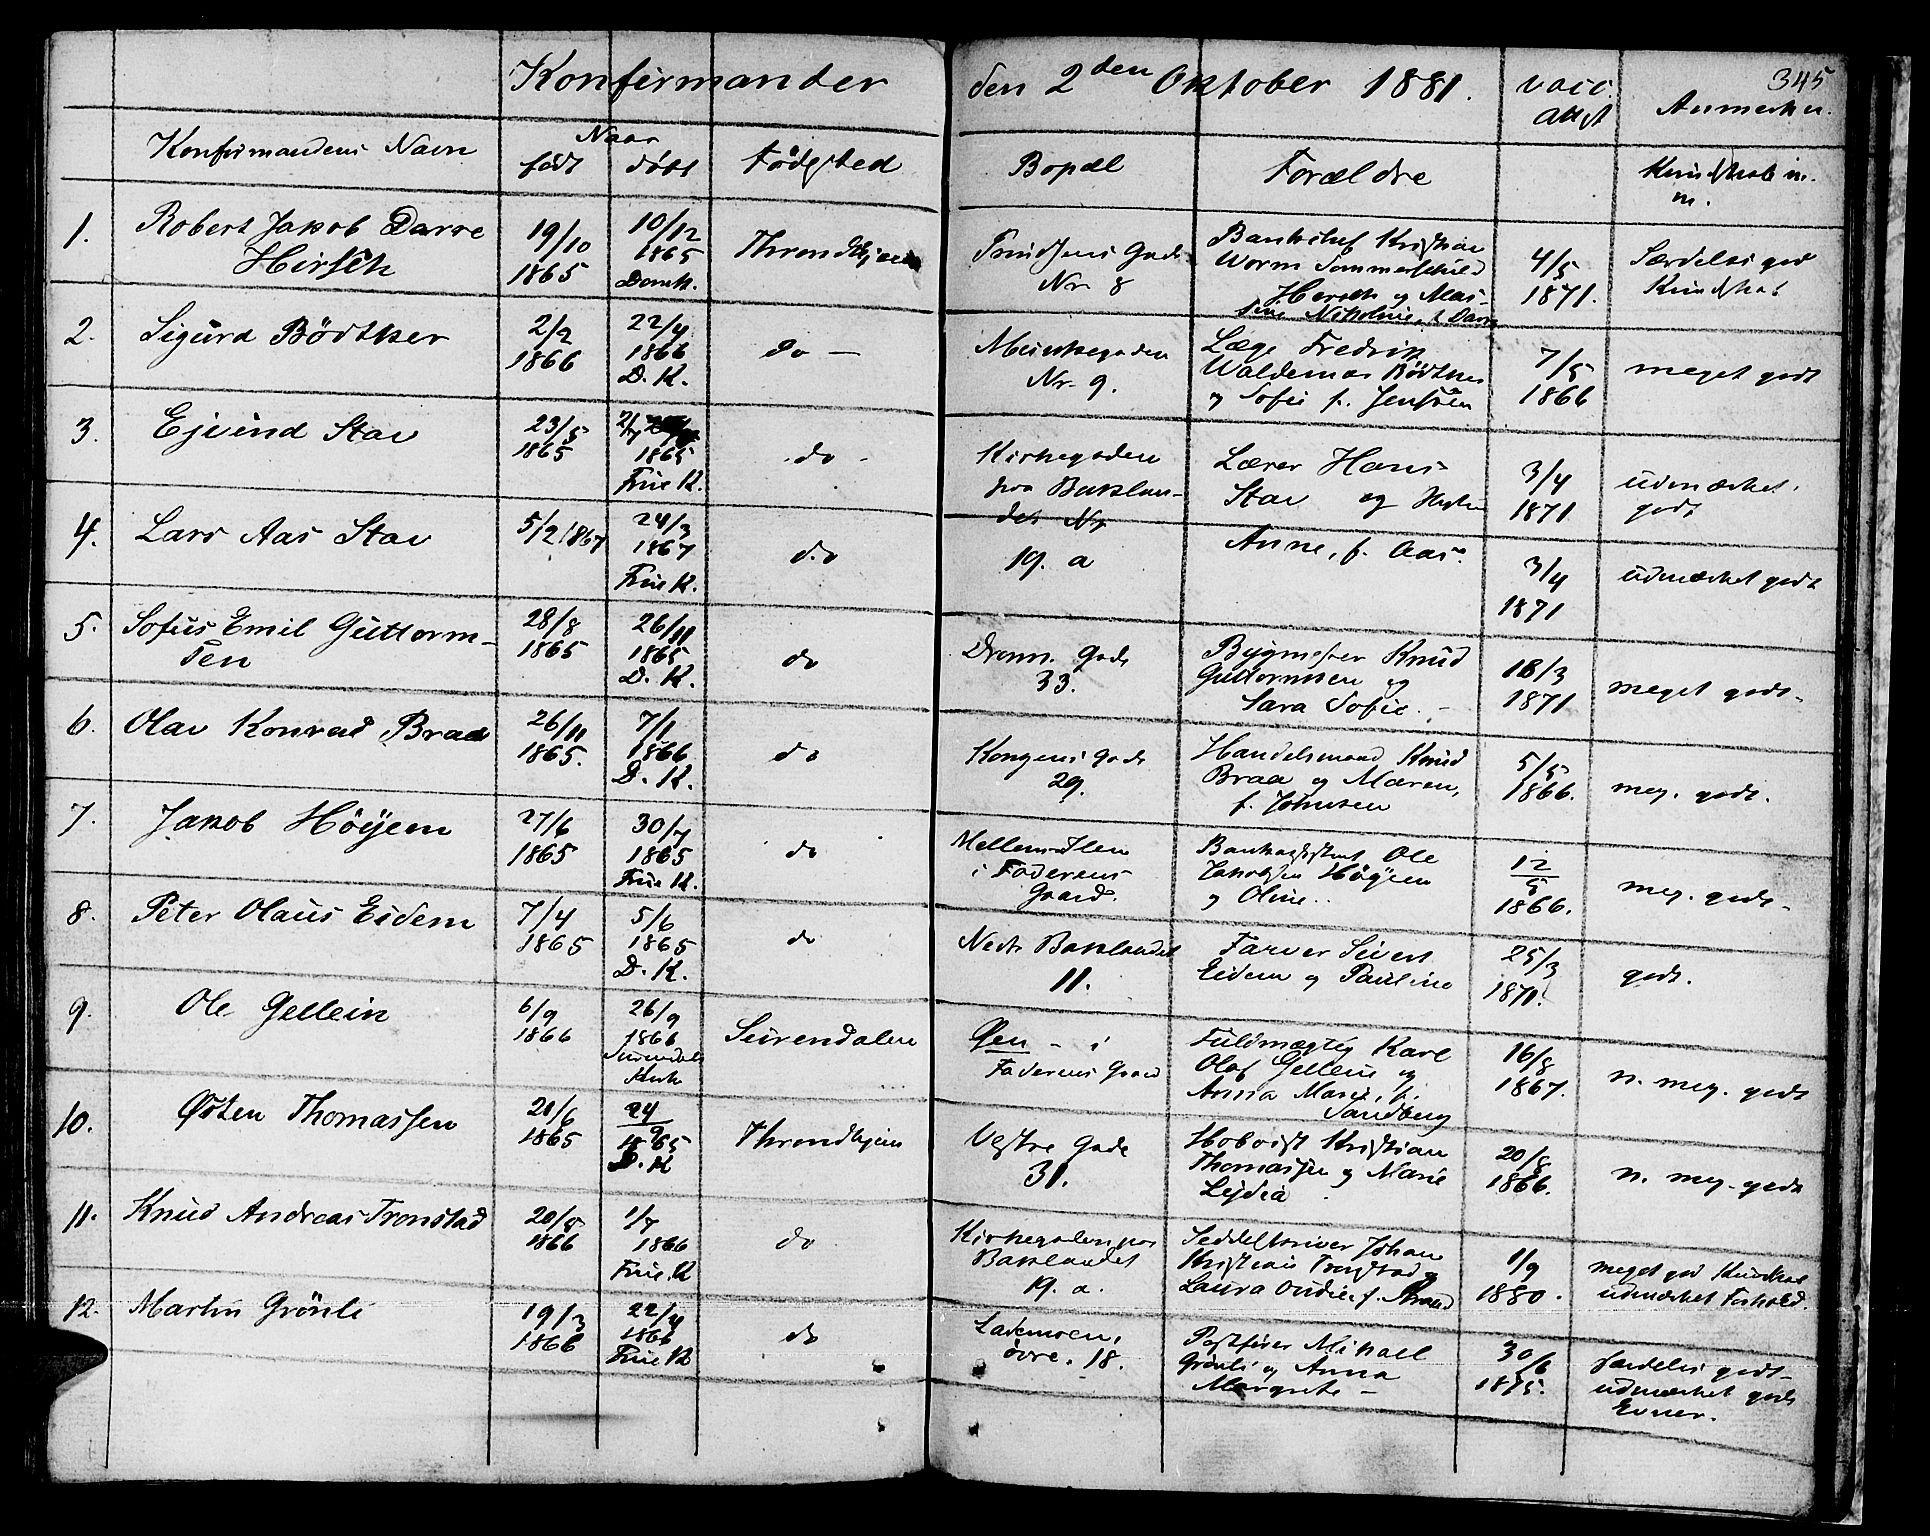 Konfirmander den 2den Oktober 1881. vacc. attst Anmerkn. 345
Konfirmandens Navn Naar født døbt Fødested Bopæl Forældre Kundskab m. m.
1. Robert Jakob Darre 19/10 10/12 Throndhjem Bankchef Kristian 4/5 Særdeles god
Hirsch 1865 1865 Domk. Nr. 8 Worm Sommerschild 1871. Kundskab
Hersch og Mas-
sine Nikoline, f. Darre
2. Sigurd Bödtker 2/2 22/4 do — Munkegaden Læge Fredrik 7/5 meget godt
1866 1866 Nr. 9. Waldemar Bödtker 1866
D. K. og Sofie f. Jenssen
3. Ejvind Stav 23/5 2/7 do Kirkegaden Lærer Hans 3/4 udmærket
1865 1865 paa Baklan- Stav og Hustru 1871 godt
Frue K. det Nr
4. Lars Aas Stav 5/2 1867 24/3 do 19. a Anne, f. Aas. 3/4 udmærket godt
1867 1871
Frue K.
5. Sofus Emil Guttorm- 28/8 26/11 do Dronn. Gade Bygmester Knud 18/3 meget godt
sen 1865 1865 33. Guttormsen og 1871
D. K. Sara Sofie.
6. Olav Konrad Braa 26/11 7/1 do Kongens Gade Handelsmand Knud 5/5 meg. godt.
1865. 1866 29. Braa og Maren, 1866.
D. K. f. Johnsen
7. Jakob Höyem 27/6 30/7 do Mellem-Ilen Bankassistent Ole 12/5 meg. godt
1865 1865 i Faderens Jakobsen Höyem 1866.
Frue K. Gaard. og Oline.
8. Peter Olaus Eidem 7/4 5/6 do Nedr Baklandet Farver Sivert 25/3 godt.
1865 1865 11. Eidem og Pauline 1871.
D. K.
9. Ole Gellein 6/9 26/9 Surendalen Øen - i Fuldmægtig Karl 16/8 n. meg. godt
1866 1866 Faderens Gaard Olaf Gellein og 1867.
Surendals Anna Marie, f.
Kirke Sandberg
10. Østen Thomassen 21/6 24/9 Throndhjem Vestre Gade Hoboist Kristian 20/8 n. meg. godt
1865 1865 31. Thomassen og Marie 1866.
D. K Lydia
11. Knud Andreas Tronstad 20/5 1/7 do Kirkegaden paa Seddelskriver Johan 1/9 meget god Kundskab
1866 1866 Baklandet Kristian Tronstad og 1880. udmærket Forhold.
Frue K 19. a. Laura f.
12. Martin Grönli 19/3 22/4 do Lademoen, Postfører Mikael 30/6 særdeles godt
1866 1866 övre. 18. Grönli og Anna 1875. udmærket gode
Frue K Margrete — Evner.